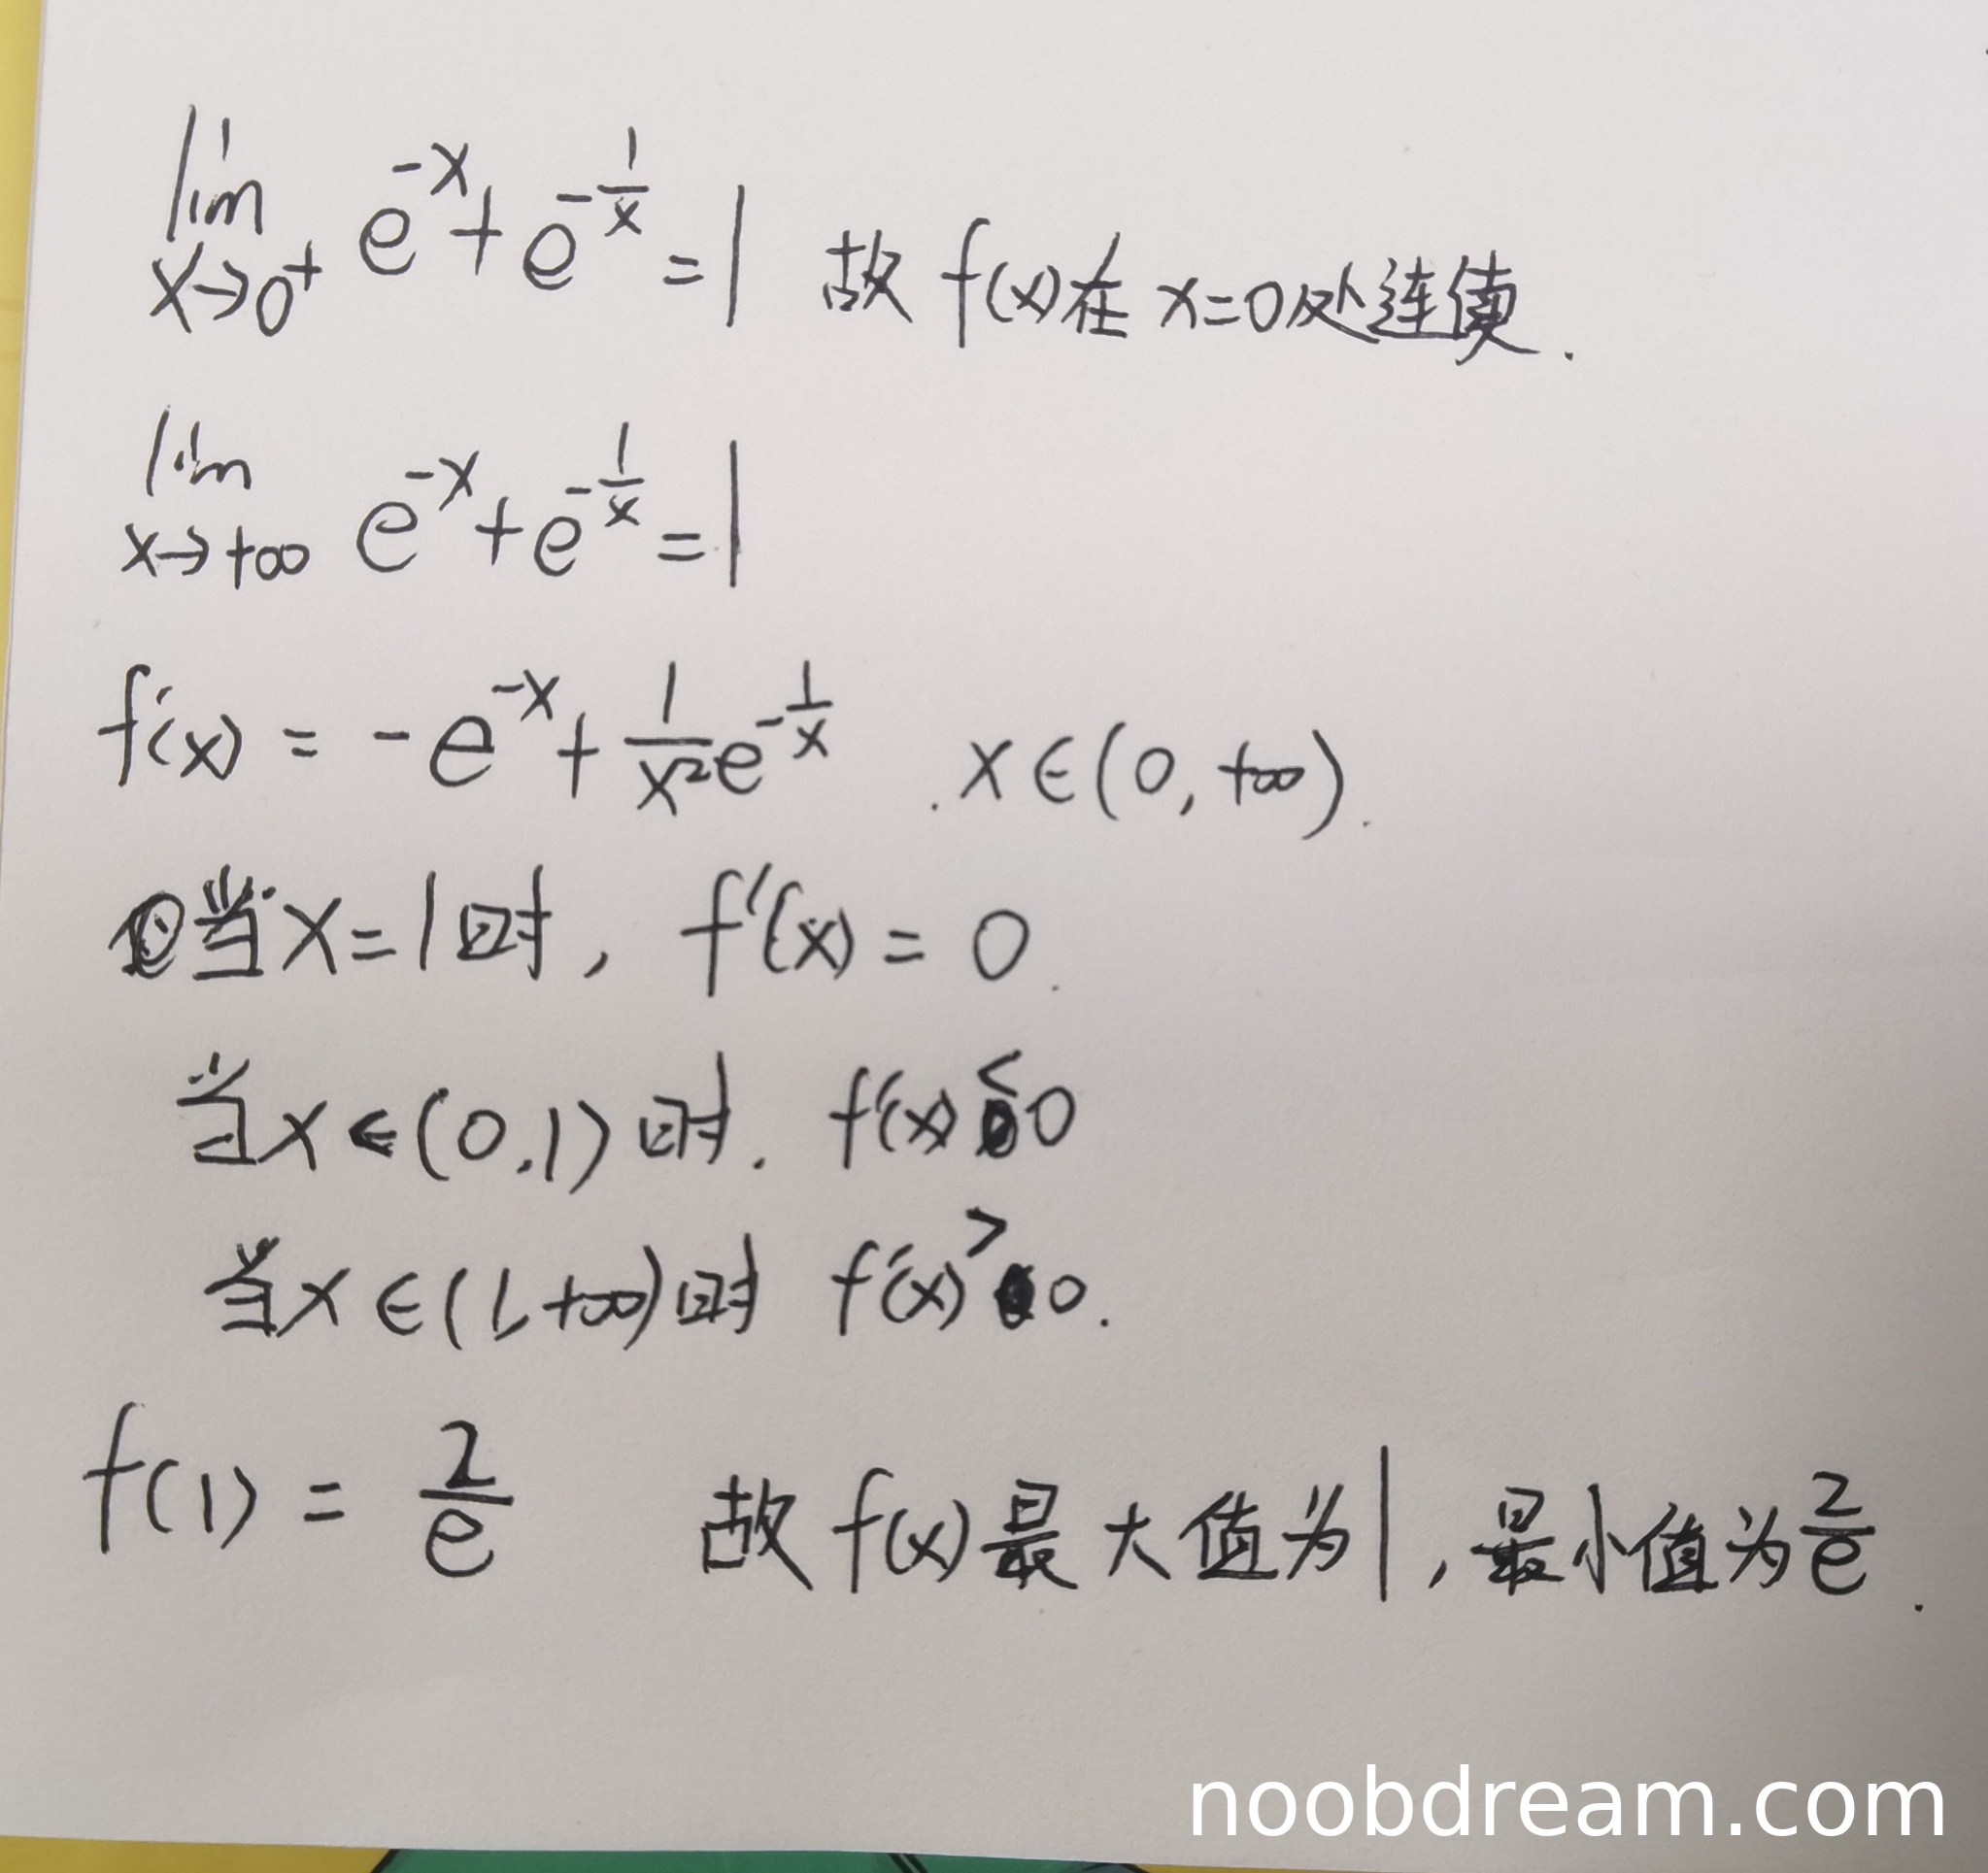 lim x→0⁺ e^{-x} + e^{-1/x} = 1 故 f(x)在 x=0处连续.
lim x→+∞ e^{-x} + e^{-1/x} = 1
f'(x) = -e^{-x} + 1/x² e^{-1/x} . x∈(0,+∞).
当x=1时, f'(x) = 0.
当x∈(0,1)时. f'(x)<0
当x∈(1,+∞)时 f'(x)>0.
f(1) = 2/e 故 f(x)最大值为1, 最小值为2/e.
noobdream.com